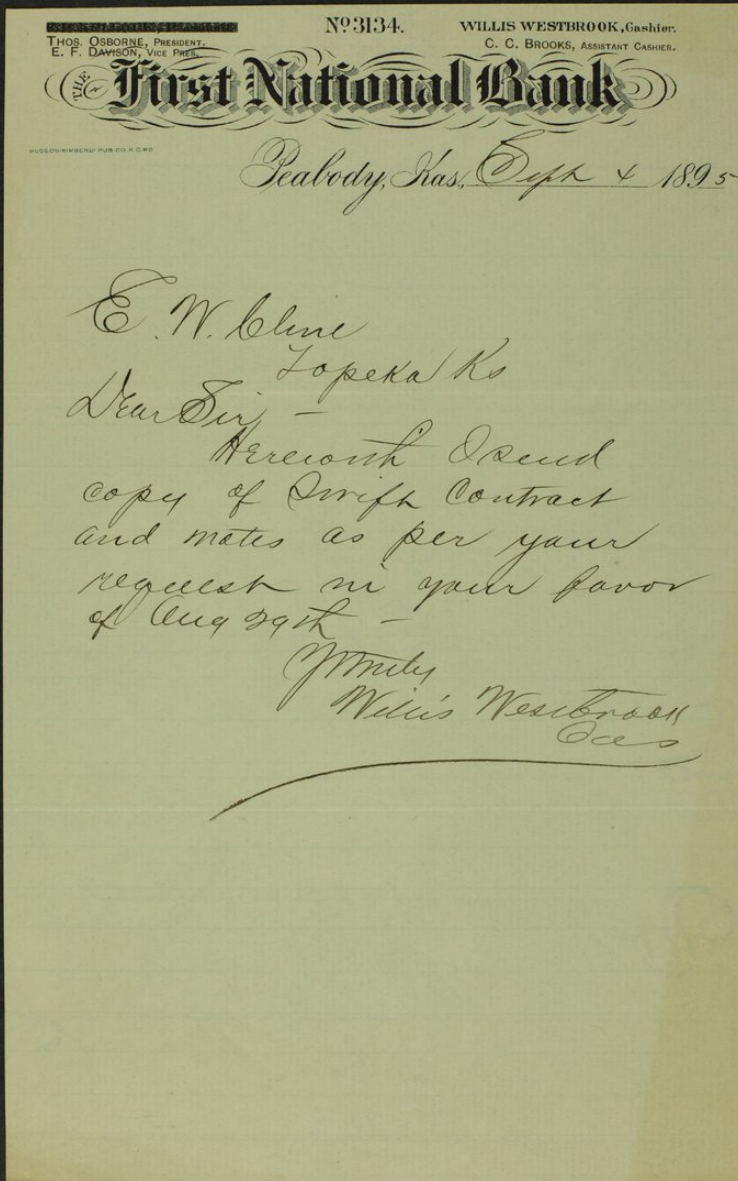 No 3134.
WILLIS WESTBROOK, Cashier.
THOS. OSBORNE, PRESIDENT.
C. C. BROOKS, ASSISTANT CASHIER.
E. F. DAVISON, VICE PRES.
THE First National Bank
HUDSON-KIMBERLY PUB. CO. K.C. MO.
Peabody, Kas., Sept 4 1895
E. W. Cline
Topeka Ks
Dear Sir, –
Herewith I send
copy of Swift Contract
and notes as per your
request in your favor
of Aug 29th –
Y truly
Willis Westbrook
Cas